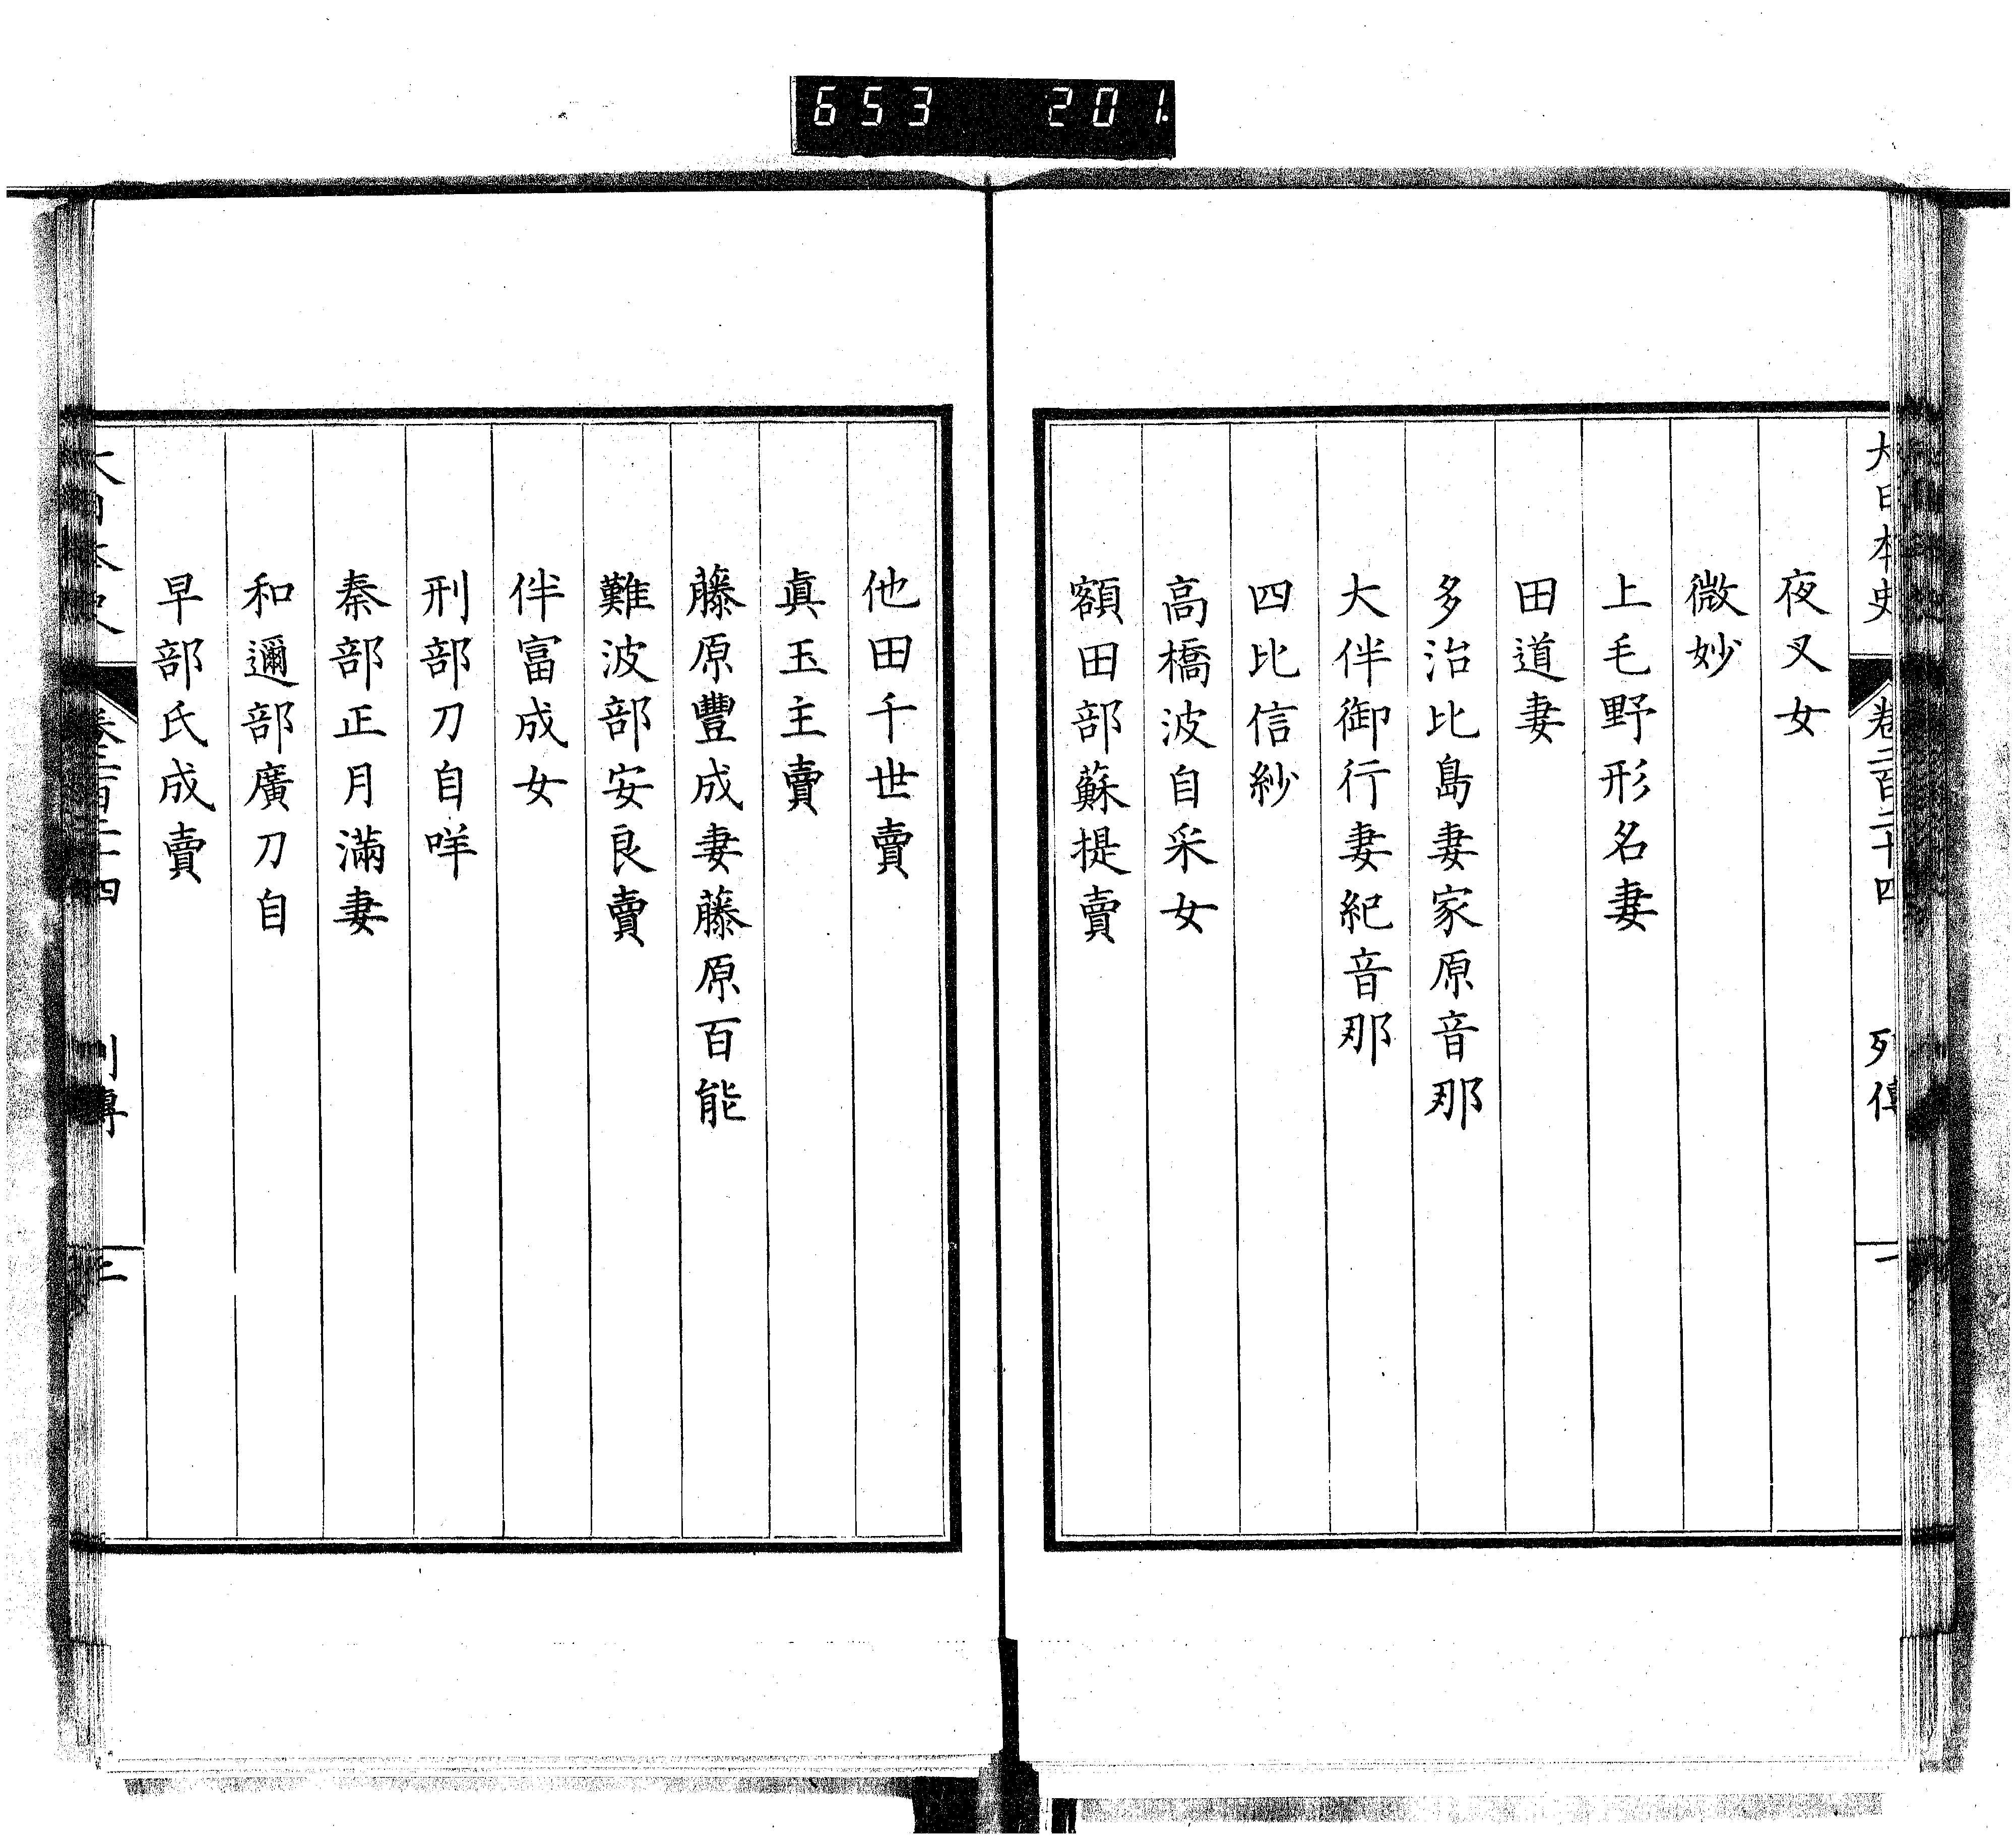 653 201.
大日本史 卷二百二十四 列傳 一
夜叉女
微妙
上毛野形名妻
田道妻
多治比島妻家原音那
大伴御行妻紀音那
四比信紗
高橋波自采女
額田部蘇提賣
他田千世賣
眞玉主賣
藤原豐成妻藤原百能
難波部安良賣
伴富成女
刑部刀自咩
秦部正月滿妻
和邇部廣刀自
早部氏成賣
大日本史 卷二百二十四 列傳